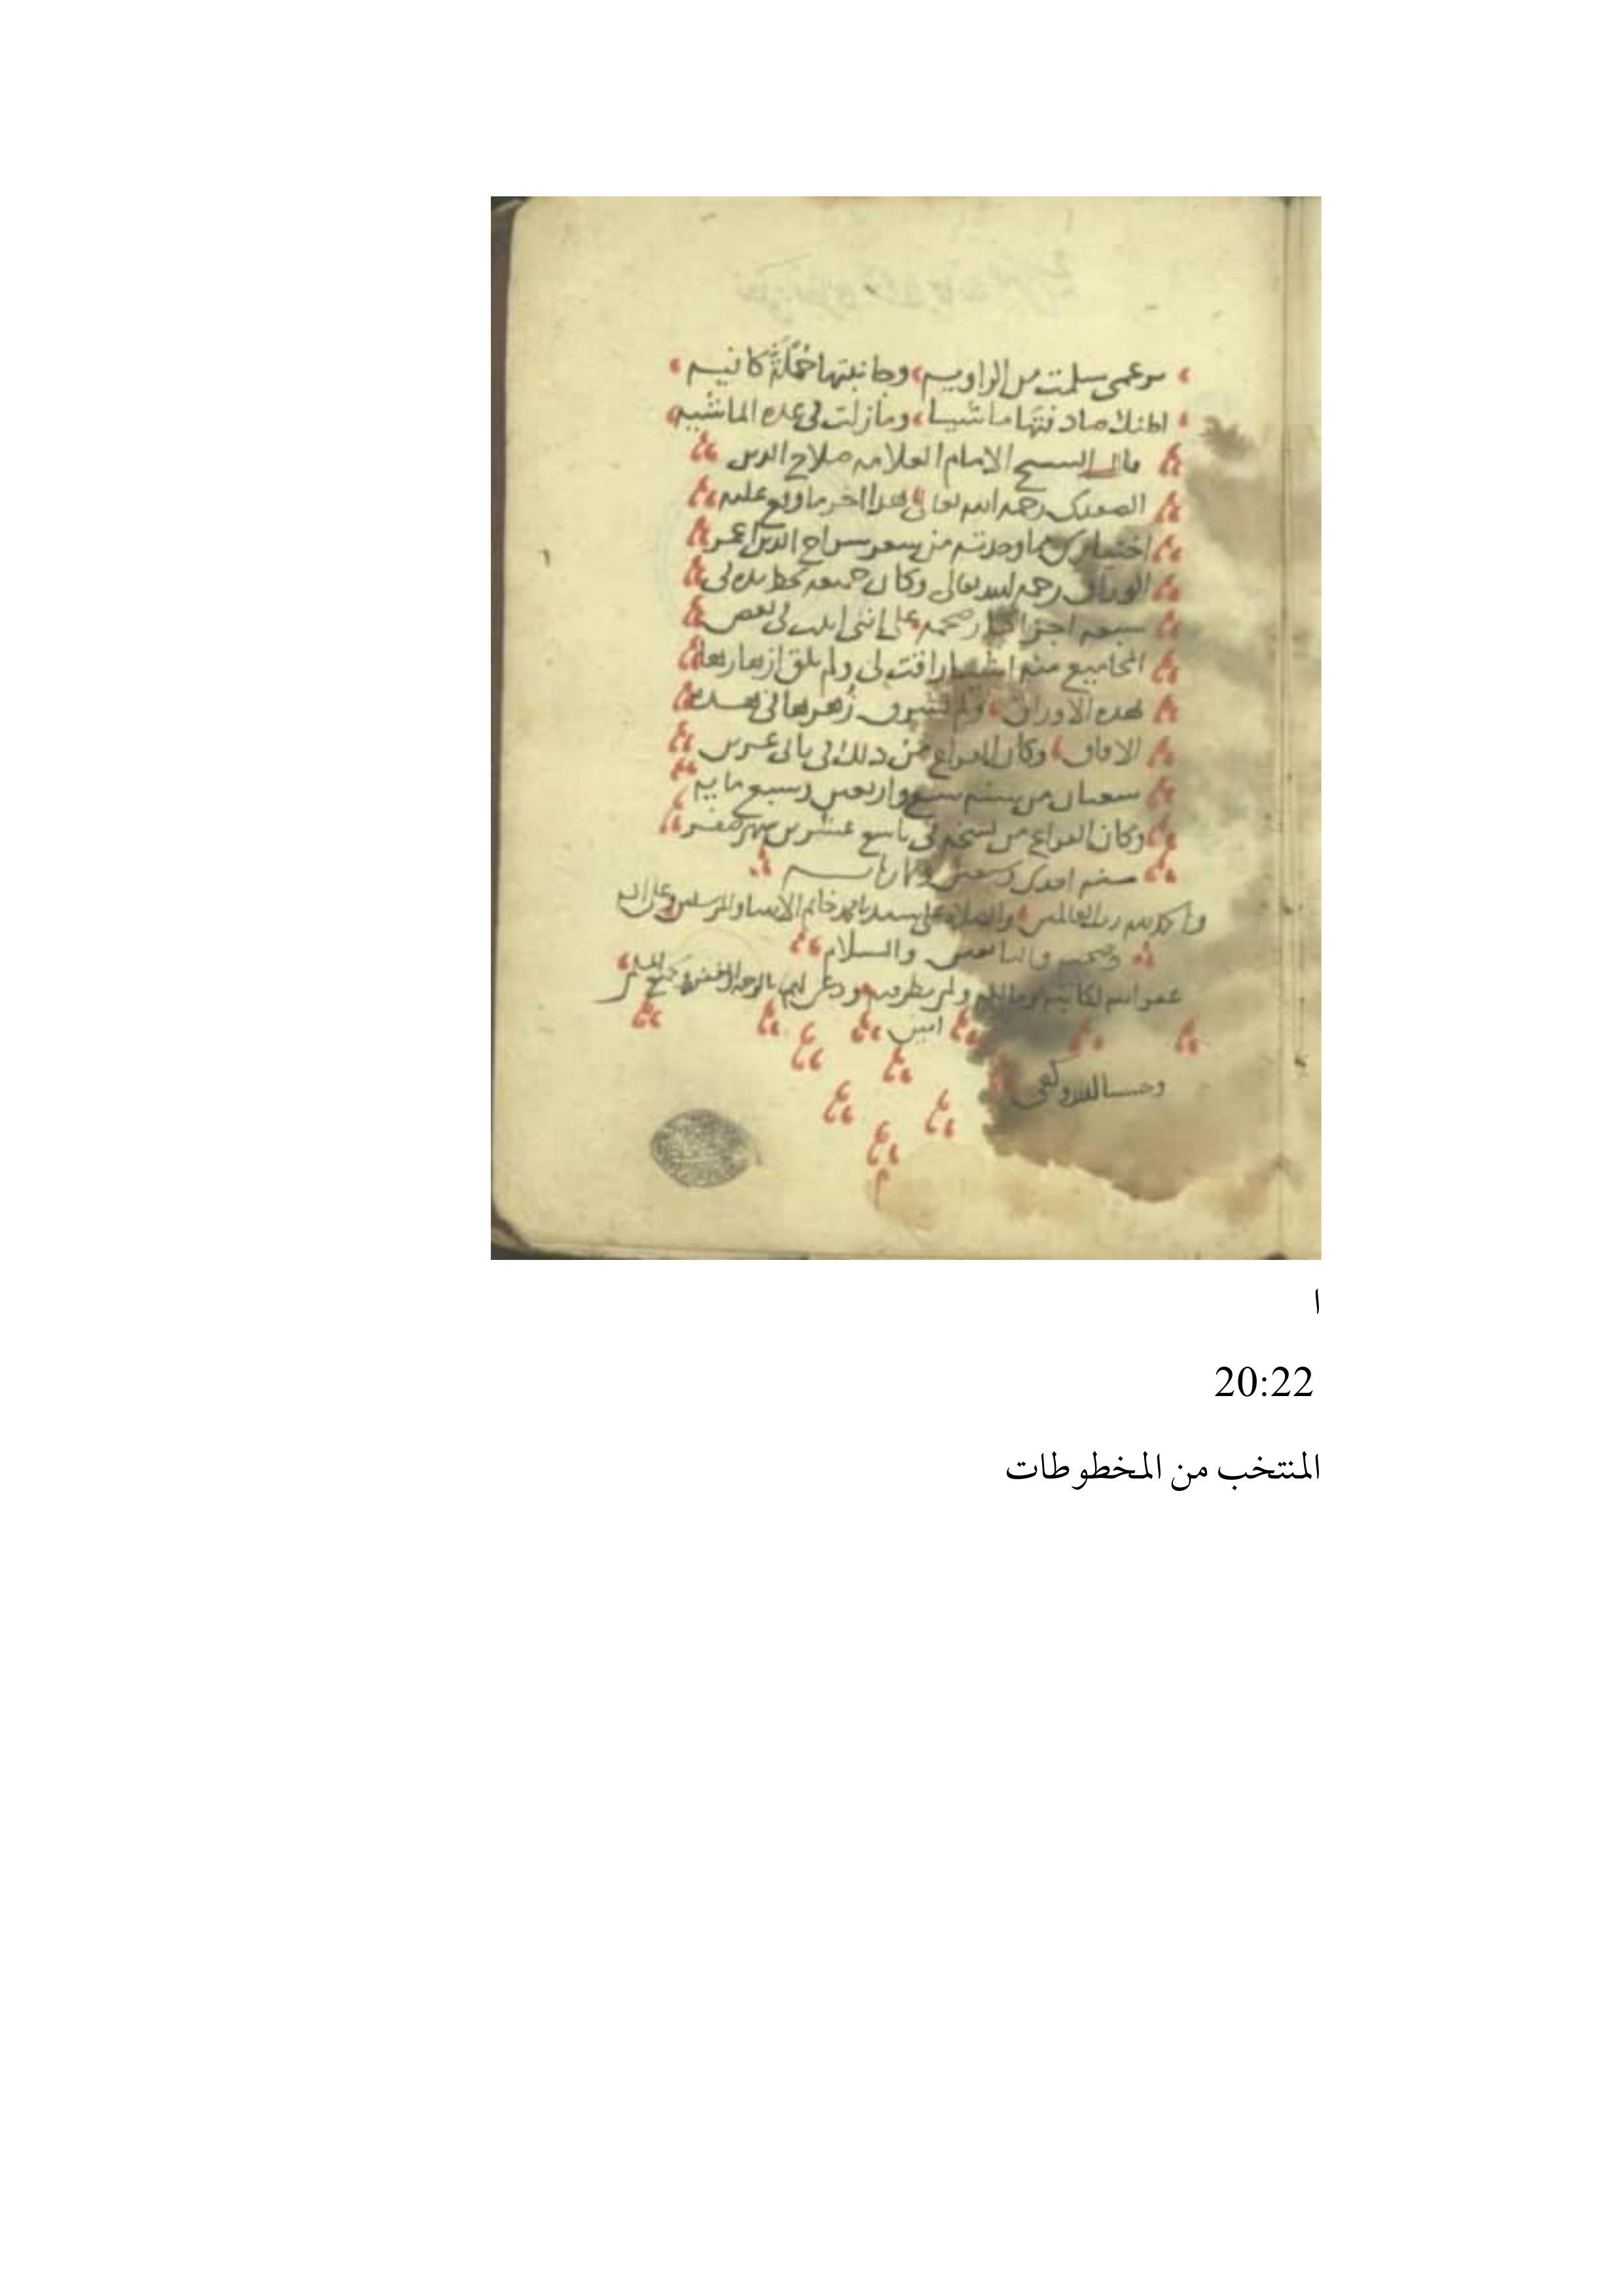 سرعمى سلمت من الراويه وجانبتها حملة كانيه
اظنك صادفتها ماشيا ومازلت في عده الماشيه
قال الشيخ الامام العلامه صلاح الدين
الصفدى رحمه الله تعالى هذا اخر ما وقع عليه
اختيارى مما وجدته من شعر سراج الدين عمر
الوراق رحمه الله تعالى وكان جمعه بخطه في
سبعه اجزا كبار ضخمه على انني اثبت في بعض
المجاميع منه اشيا راقت لى ولم يلق ازهارها
بهذه الاوراق ولم تشرق زهرها في هذه
الافاق وكان الفراغ من ذلك في ثانى عشرين
شعبان من سنه سبع واربعين وسبع مايه
وكان الفراغ من نسخه في تاسع عشرين شهر صفر
سنه احدى وثمان مايه
والحمد لله رب العالمين والصلاه على سيدنا محمد خاتم الانبيا والمرسلين وعلى اله
وصحبه والتابعين والسلام
غفر الله لكاتبه ولمن نظر فيه ودعا لهم بالرحمه
امين
وحسبنا الله وكفى
ا
20:22
المنتخب من المخطوطات